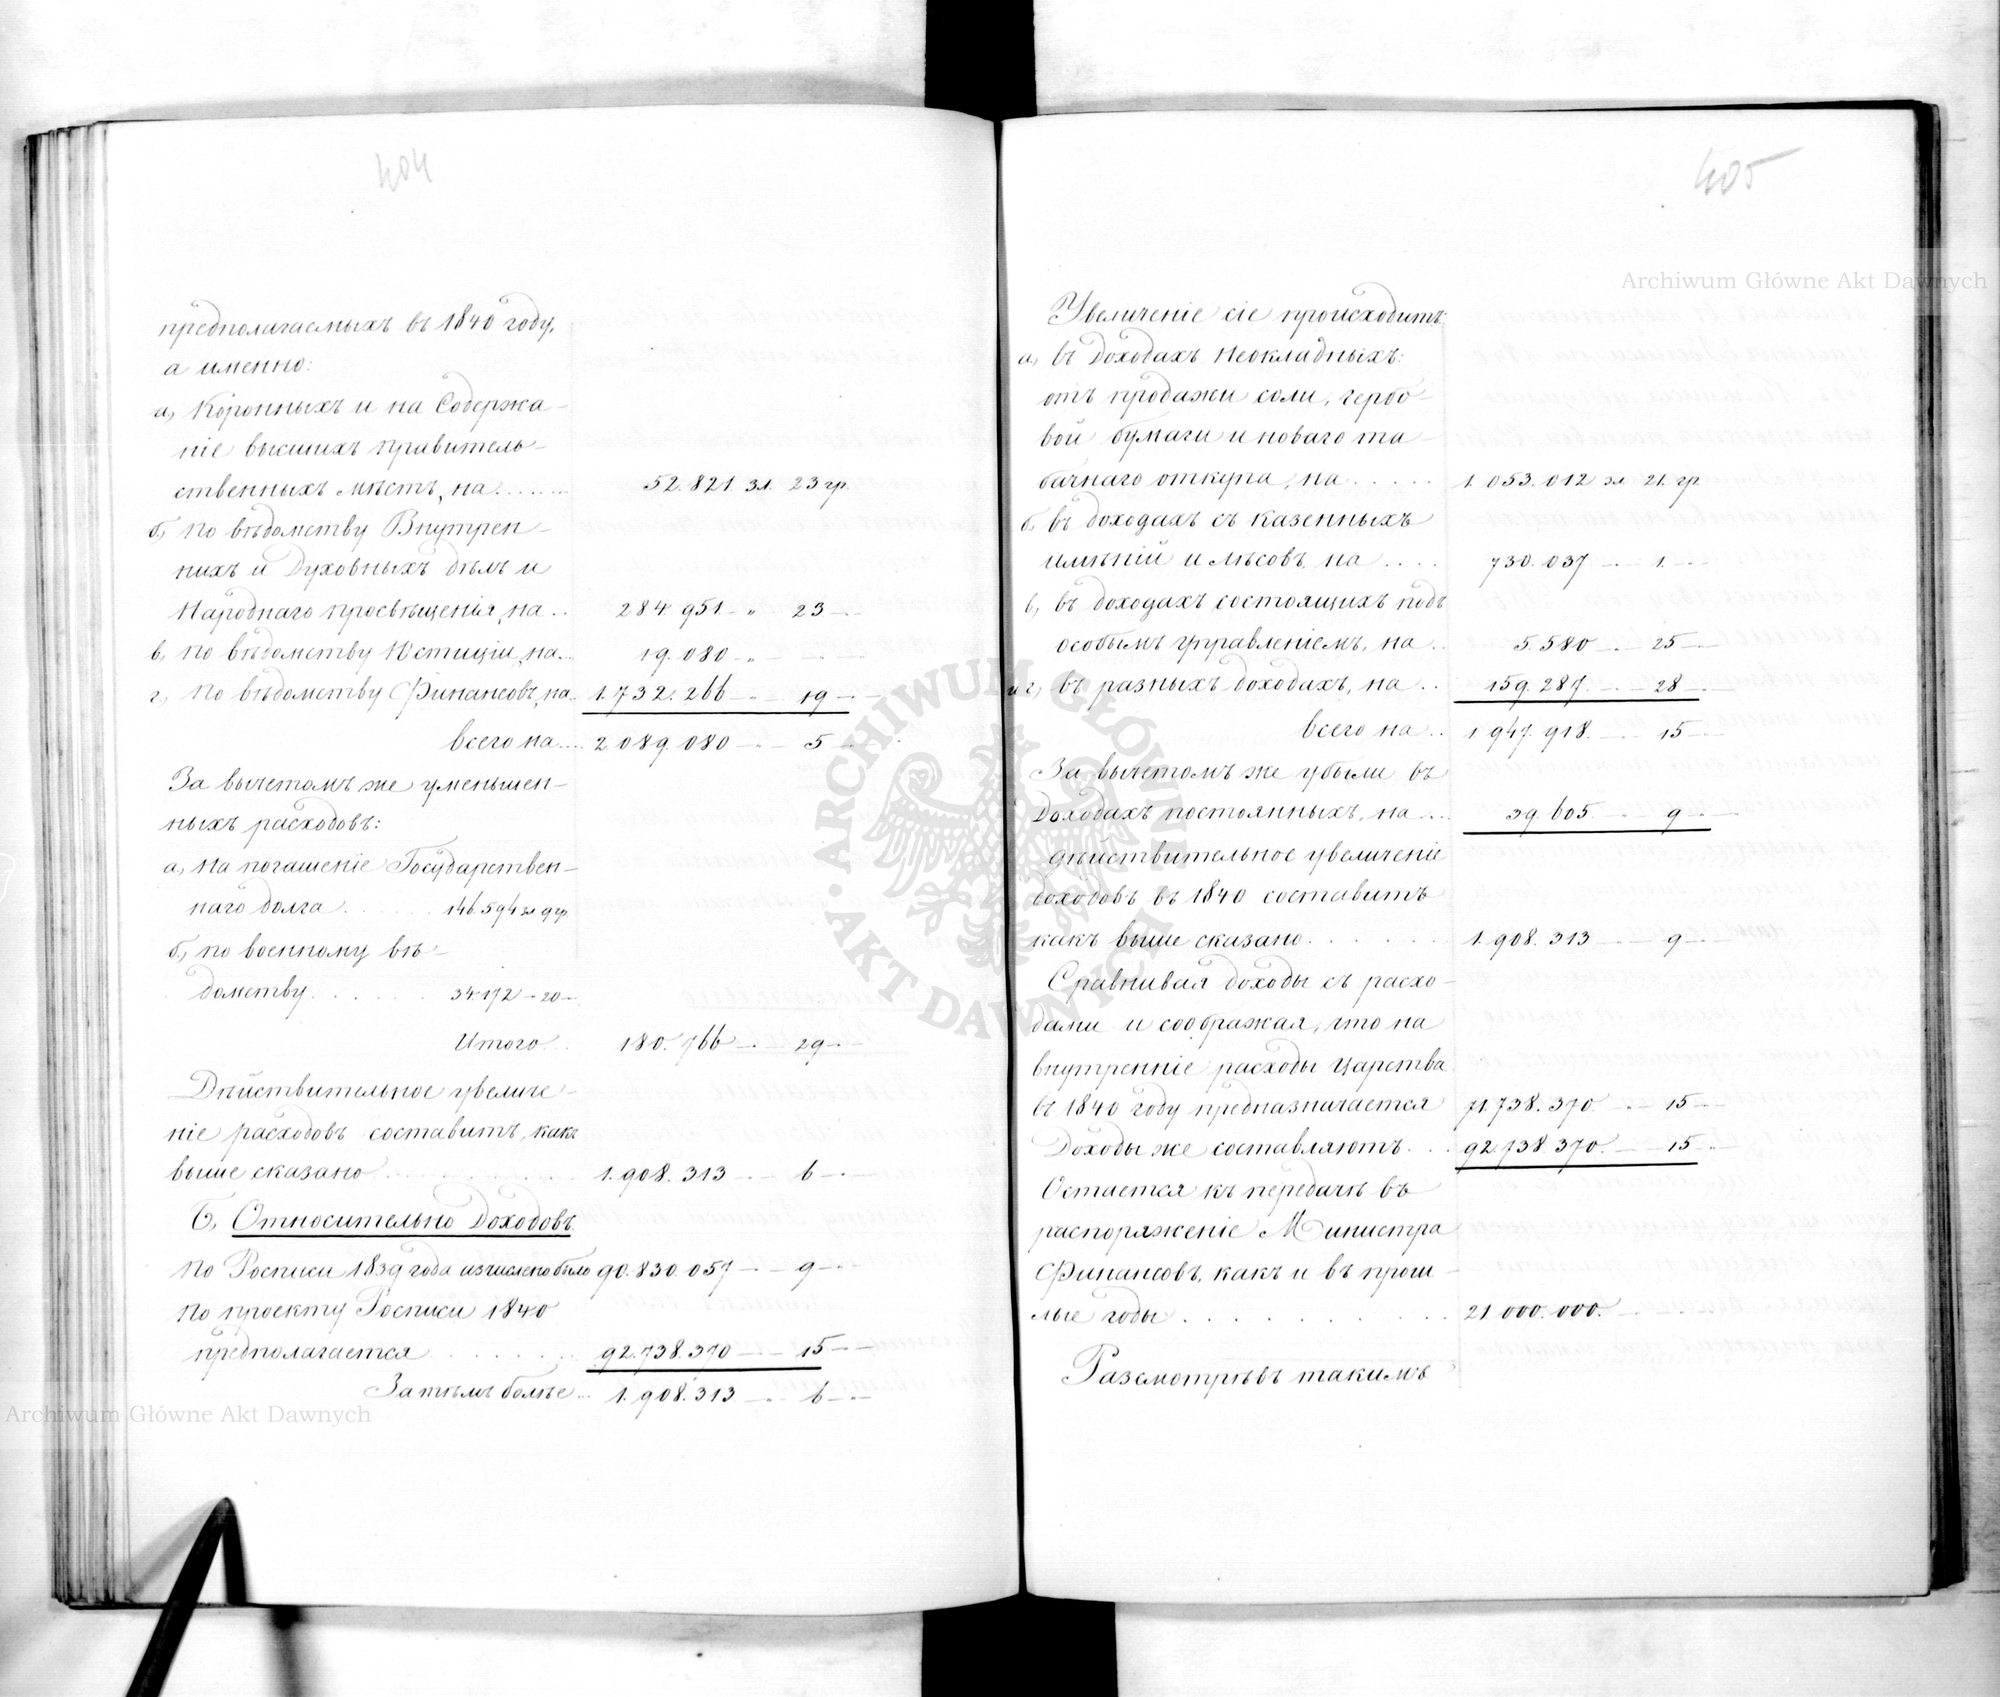 404
предполагаемыхъ въ 1840 году,
а именно:
а, Коронныхъ и на Содержа-
ніе высшихъ правитель-
ственныхъ мѣстъ, на....... 52.821. зл. 23 гр.
б, по вѣдомству Внутрен-
нихъ и Духовныхъ дѣлъ и
Народнаго просвѣщенія, на.. 284.951 - " 23 -
в, по вѣдомству Юстиціи, на... 19.080 - " - -
г, по вѣдомству Финансовъ, на. 1.732.266 - " - 19 -
всего на.... 2.089.080 - - 5 -
За вычетомъ же уменьшен-
ныхъ расходовъ:
а, на погашеніе Государствен-
наго долга...... 146.594 зл 9 гр.
б, по военному вѣ-
домству....... 34.172 - 20 -
Итого.. 180.766 - - 29 -
Дѣйствительное увеличе-
ніе расходовъ составитъ, какъ
выше сказано.......... 1.908.313 - - 6 -
Б, Относительно Доходовъ
По Росписи 1839 года изчислено было 90.830.057 - - 9 -
По проекту Росписи 1840
предполагается....... 92.738.370 - - 15 -
Затѣмъ болѣе... 1.908.313 - - 6 -
405
Увеличеніе сіе происходитъ:
а, въ доходахъ неокладныхъ:
отъ продажи соли, гербо-
вой бумаги и новаго та-
бачнаго откупа, на..... 1.053.012 зл 21. гр.
б, въ доходахъ съ казенныхъ
имѣній и лѣсовъ, на.... 730.037 - - 1. -
в, въ доходахъ состоящихъ подъ
особымъ управленіемъ, на.. 5.580 - - 25 -
и г, въ разныхъ доходахъ, на.. 159.287. - - 28 -
всего на.. 1.947.918. - - 15 -
За вычетомъ же убыли въ
Доходахъ постоянныхъ, на... 39.605. - - 9 -
дѣйствительное увеличеніе
доходовъ въ 1840 составитъ
какъ выше сказано....... 1.908.313 - - 9 -
Сравнивая доходы съ расхо-
дами и соображая, что на
внутренніе расходы Царства
въ 1840 году предназначается 71.738.370. - - 15 -
Доходы же составляютъ... 92.738.370. - - 15 -
Остается къ передачѣ въ
распоряженіе Министра
Финансовъ, какъ и въ прош-
лые годы........... 21.000.000. - - -
Разсмотрѣвъ такимъ
Archiwum Główne Akt Dawnych
Archiwum Główne Akt Dawnych
ARCHIWUM GŁÓWNE AKT DAWNYCH